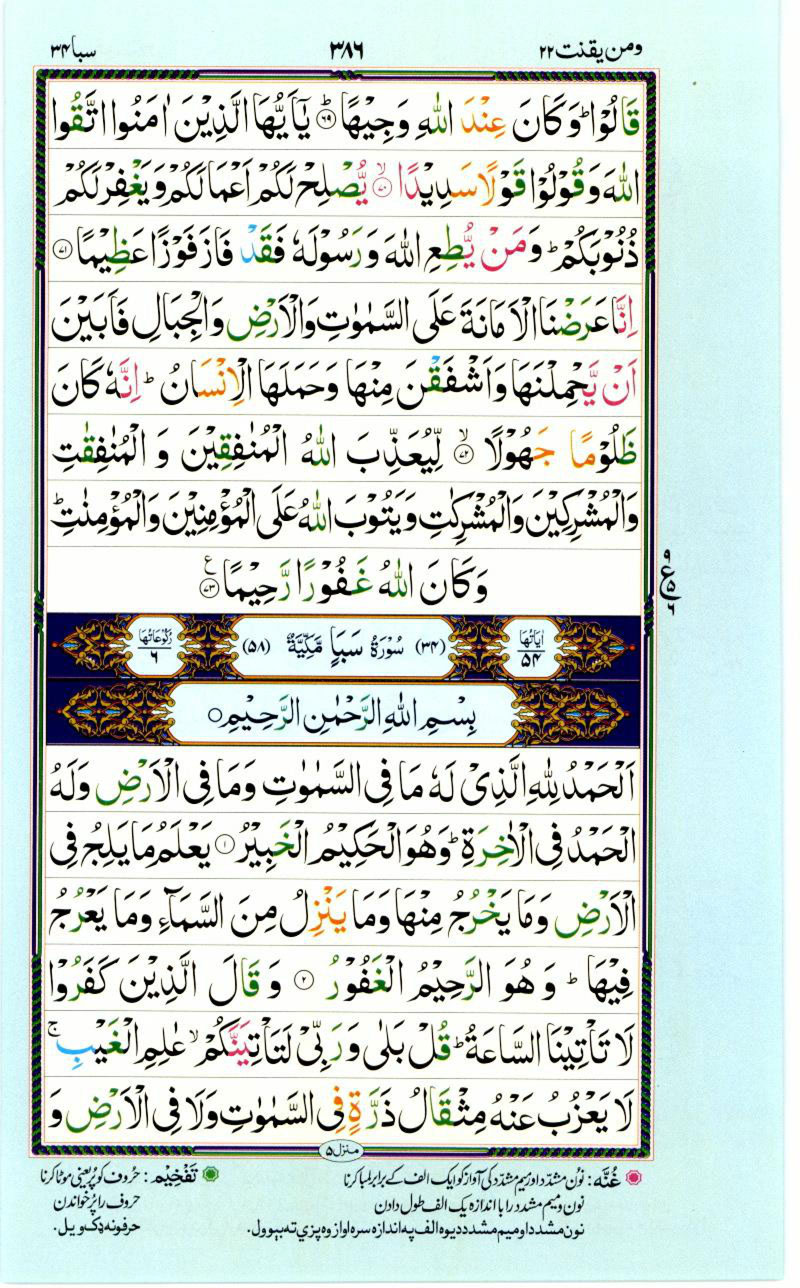 ومن یقنت ۲۲ ۳۸۶ سبا ۳۴
قَالُوْاؕ وَكَانَ عِنْدَ اللّٰهِ وَجِیْهًاؕ ۶۹ یٰۤاَیُّهَا الَّذِیْنَ اٰمَنُوا اتَّقُوا
اللّٰهَ وَقُوْلُوْا قَوْلًا سَدِیْدًاۙ ۷۰ یُّصْلِحْ لَكُمْ اَعْمَالَكُمْ وَیَغْفِرْ لَكُمْ
ذُنُوْبَكُمْؕ وَمَنْ یُّطِعِ اللّٰهَ وَرَسُوْلَهٗ فَقَدْ فَازَ فَوْزًا عَظِیْمًا ۷۱
اِنَّا عَرَضْنَا الْاَمَانَةَ عَلَی السَّمٰوٰتِ وَالْاَرْضِ وَالْجِبَالِ فَاَبَیْنَ
اَنْ یَّحْمِلْنَهَا وَاَشْفَقْنَ مِنْهَا وَحَمَلَهَا الْاِنْسَانُؕ اِنَّهٗ كَانَ
ظَلُوْمًا جَهُوْلًاۙ ۷۲ لِّیُعَذِّبَ اللّٰهُ الْمُنٰفِقِیْنَ وَ الْمُنٰفِقٰتِ
وَالْمُشْرِكِیْنَ وَالْمُشْرِكٰتِ وَیَتُوْبَ اللّٰهُ عَلَی الْمُؤْمِنِیْنَ وَالْمُؤْمِنٰتِؕ
وَكَانَ اللّٰهُ غَفُوْرًا رَّحِیْمًا ۷۳ ع
۹ ع ۵ ۶
اٰیاتها ۵۴ (۳۴) سُوْرَةُ سَبَاٍ مَّكِّیَّةٌ (۵۸) رکوعاتها ۶
بِسْمِ اللّٰهِ الرَّحْمٰنِ الرَّحِیْمِ
اَلْحَمْدُ لِلّٰهِ الَّذِیْ لَهٗ مَا فِی السَّمٰوٰتِ وَمَا فِی الْاَرْضِ وَلَهُ
الْحَمْدُ فِی الْاٰخِرَةِؕ وَهُوَ الْحَكِیْمُ الْخَبِیْرُ ۱ یَعْلَمُ مَا یَلِجُ فِی
الْاَرْضِ وَمَا یَخْرُجُ مِنْهَا وَمَا یَنْزِلُ مِنَ السَّمَآءِ وَمَا یَعْرُجُ
فِیْهَاؕ وَهُوَ الرَّحِیْمُ الْغَفُوْرُ ۲ وَ قَالَ الَّذِیْنَ كَفَرُوْا
لَا تَاْتِیْنَا السَّاعَةُؕ قُلْ بَلٰی وَرَبِّیْ لَتَاْتِیَنَّكُمْۙ عٰلِمِ الْغَیْبِۚ
لَا یَعْزُبُ عَنْهُ مِثْقَالُ ذَرَّةٍ فِی السَّمٰوٰتِ وَلَا فِی الْاَرْضِ وَ
منزل ۵
غُنَّه: نُون مشدّد اور میم مشدّد کی آواز کو ایک الف کے برابر لمبا کرنا
نون و میم مشدد را با اندازه یک الف طول دادن
نون مشدد او میم مشدد د یوه الف په اندازه سره اواز وه پزي ته بېوول.
تَفْخِیْم: حُروف کو پُر یعنی موٹا کرنا
حروف را پُر خواندن
حرفونه ډک ویل.